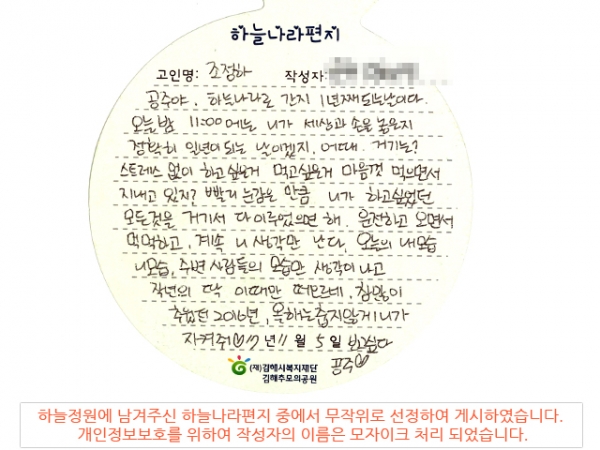 하늘나라편지
고인명: 조정하 작성자:
공주야. 하늘나라로 간지 1년째되는날이다.
오늘밤 11:00에는 니가 세상과 손을 놓은지
정확히 일년이 되는 날이겠지. 어때. 거기는?
스트레스 없이 하고싶은거 먹고싶은거 마음껏 먹으면서
지내고 있지? 빨리 눈감은 만큼 니가 하고싶었던
모든것을 거기서 다이루었으면 해. 운전하고 오면서
먹먹하고, 계속 니생각만 난다. 오늘의 내모습
네모습, 주변사람들의 모습만 생각이나고
작년의 딱 이때만 떠오르네. 참많이
추웠던 2016년, 올해는춥지않게니가
지켜줘♡ 17년 11월 5일 보고싶다
공주♡
(재)김해시복지재단
김해추모의공원
하늘정원에 남겨주신 하늘나라편지 중에서 무작위로 선정하여 게시하였습니다.
개인정보보호를 위하여 작성자의 이름은 모자이크 처리 되었습니다.